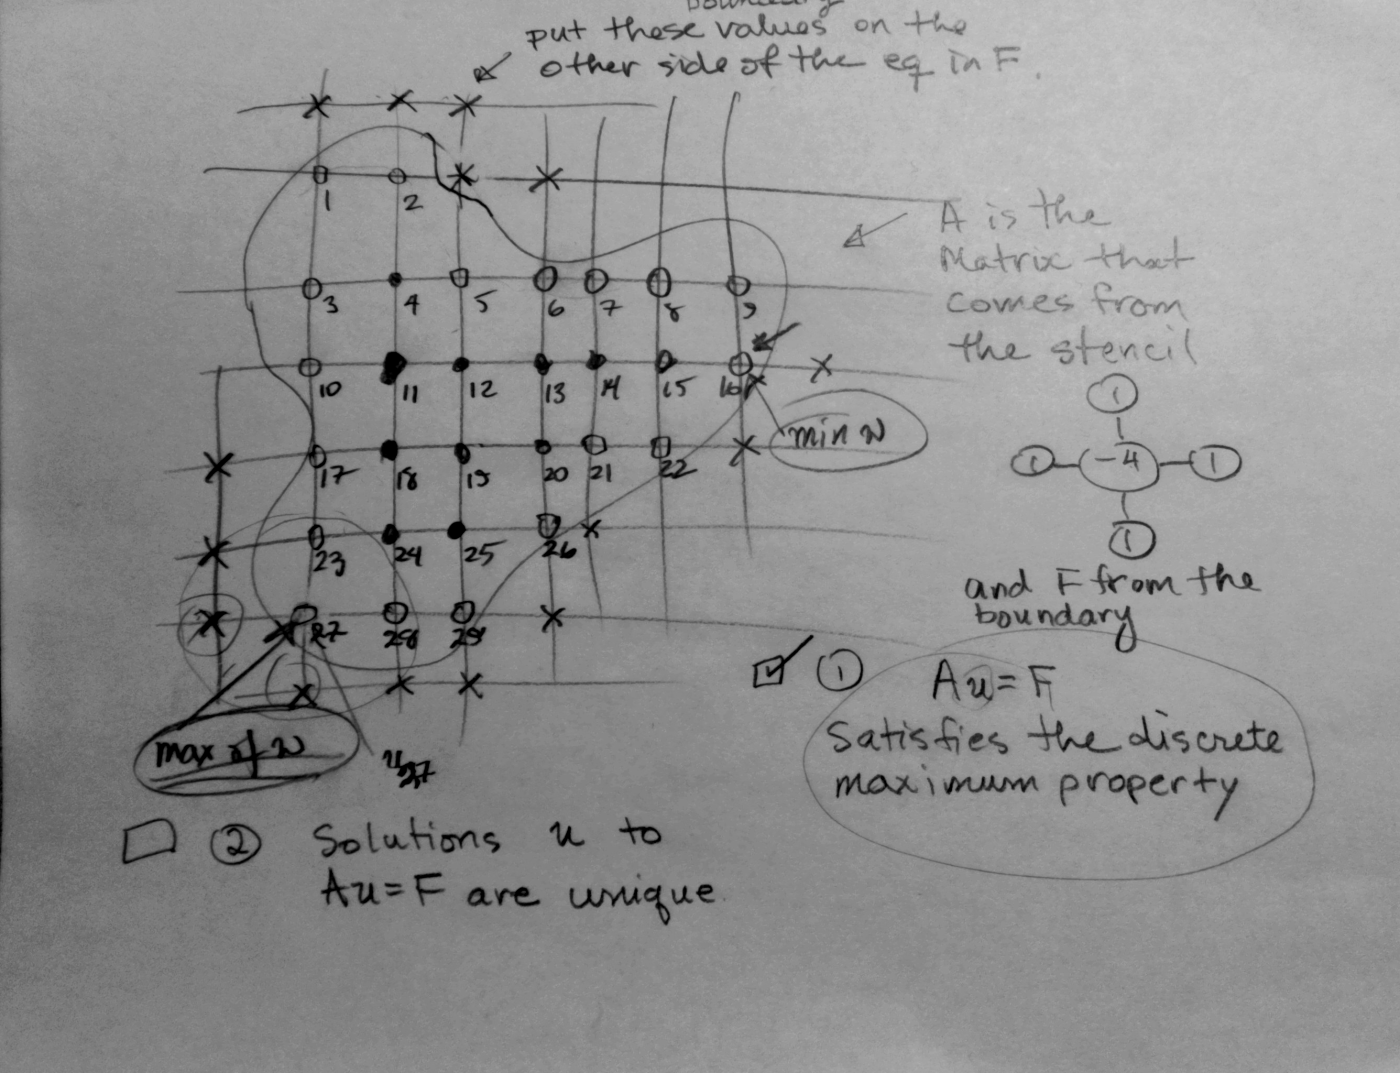 boundary
put these values on the
other side of the eq in F.
1 2
3 4 5 6 7 8 9
10 11 12 13 14 15 16
17 18 19 20 21 22
23 24 25 26
27 28 29
A is the
Matrix that
comes from
the stencil
1
1 -4 1
1
and F from the
boundary
min u
max of u
u27
① Au = F
Satisfies the discrete
maximum property
② Solutions u to
Au = F are unique.